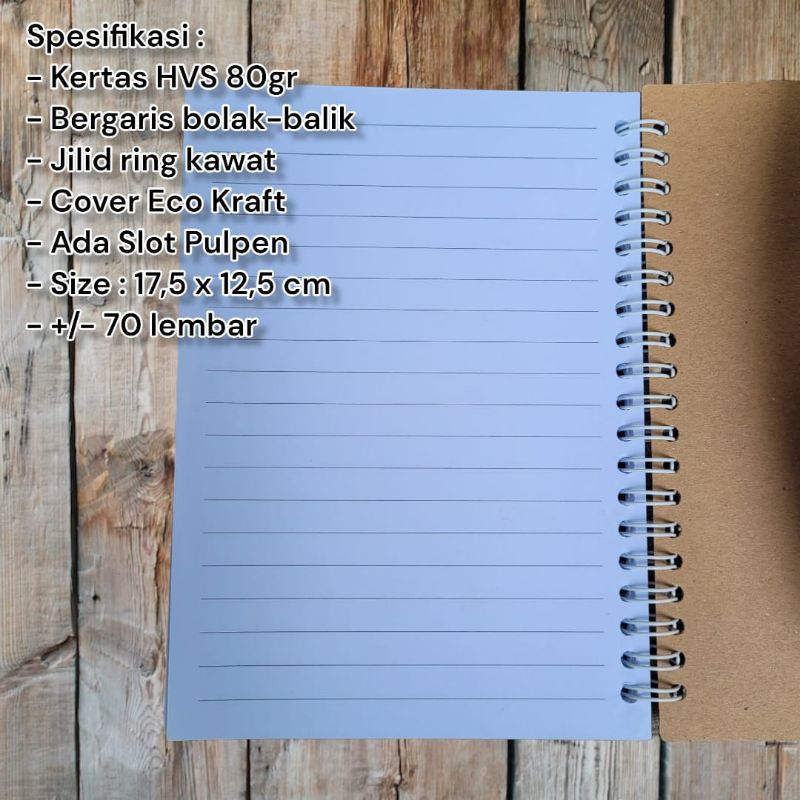 Spesifikasi :
- Kertas HVS 80gr
- Bergaris bolak-balik
- Jilid ring kawat
- Cover Eco Kraft
- Ada Slot Pulpen
- Size : 17,5 x 12,5 cm
- +/- 70 lembar